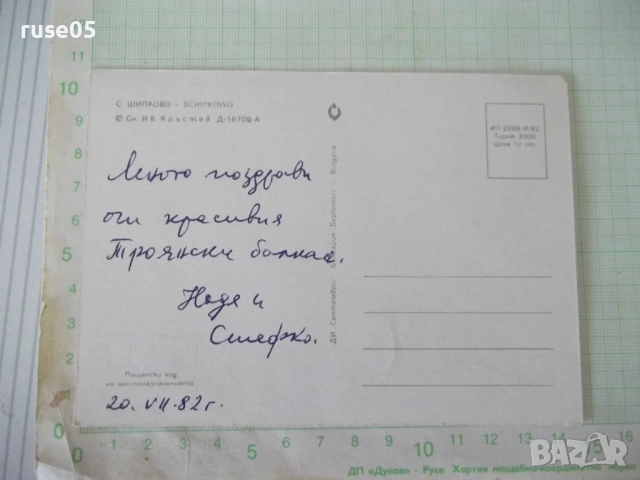 ruse05
С. ШИПКОВО – SCHIPKOWO
© Сн. Ив. Кръстев Д-16708-А
Много поздрави
от красивия
Троянски балкан.
Надя и
Стефко.
Пощенски код
на местоназначението
20. VII. 82 г.
ДИ „Септември" България Septemvri Bulgaria
Тираж 3000
Цена 12 ст.
11
10
9
8
7
6
5
4
3
2
1
0
0 1 2 3 4 5 6 7 8 9 10 11 12 13 14 15 16
ДП «Дунав» - Русе Хартия мащабно-координатна марка
BAZAR